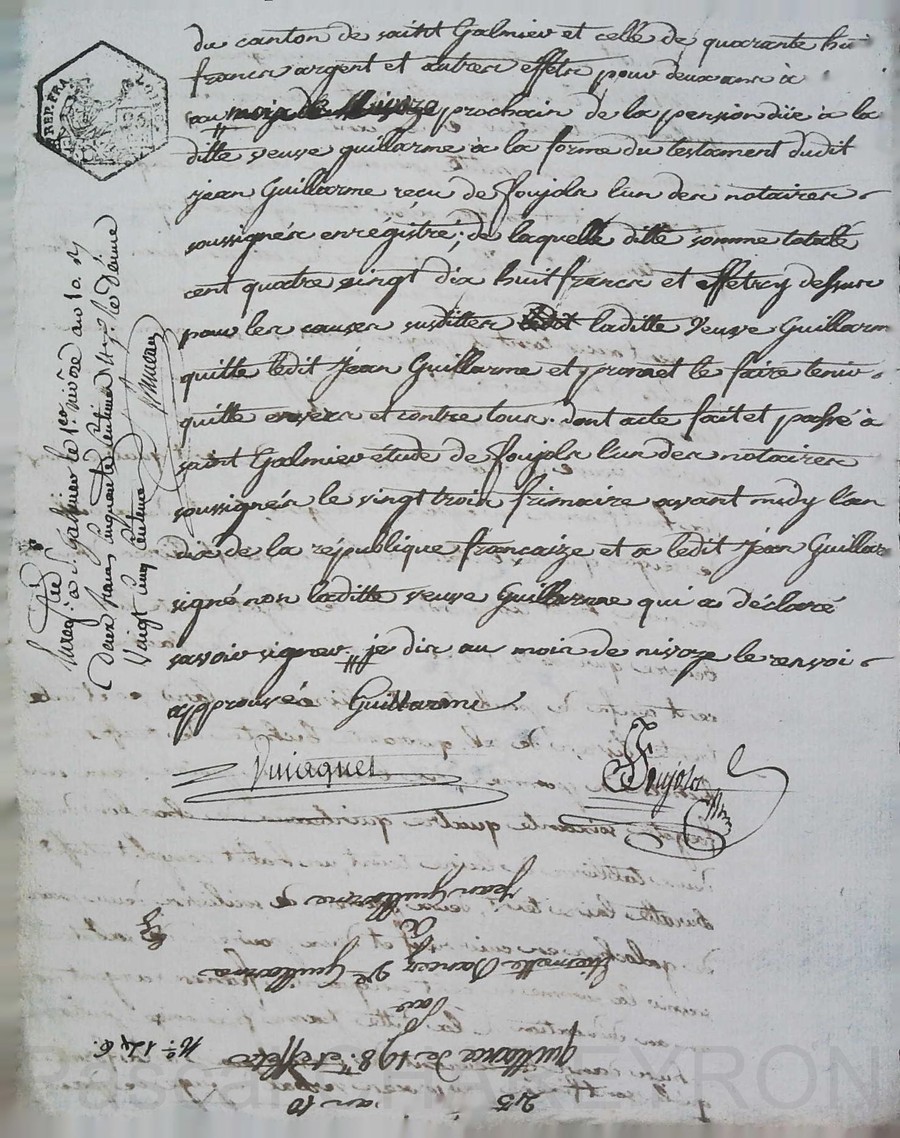 du canton de saint Galmier et celle de quarante hui
francs argent et autres effets pour deux ans à
au mois de prochain de la pension düe à la
ditte veuve guillarme à la forme du testament dudit
jean Guillarme reçu de foujols l'un des notaires
soussignés enrégistré; de laquelle ditte somme totalle
cent quatre vingt dix huit francs et effets cy dessus
pour les causes susdittes laditte Veuve Guillarm
quitte ledit Jean Guillarme et promet le faire tenir
quitte envers et contre tous. dont acte fait et passé à
saint Galmier étude de foujols l'un des notaires
soussignés le vingt trois frimaire avant midy l'an
dix de la république françaize et a ledit Jean Guillar
signé non laditte veuve Guillarme qui a déclaré
savoir signer. je dis au mois de nivoze le renvoi
approuvée Guillarme
foujols
Enreg. à St. galmier le 1er nivôse an 10
Deux francs cinquante centimes
Vingt cinq centimes
REP. FRA.
25
an 10
quittance de 198 fr. et effets
No. 126.
par
Ve Guillarme
à
jean Guillarme
Pascal CHAREYRON